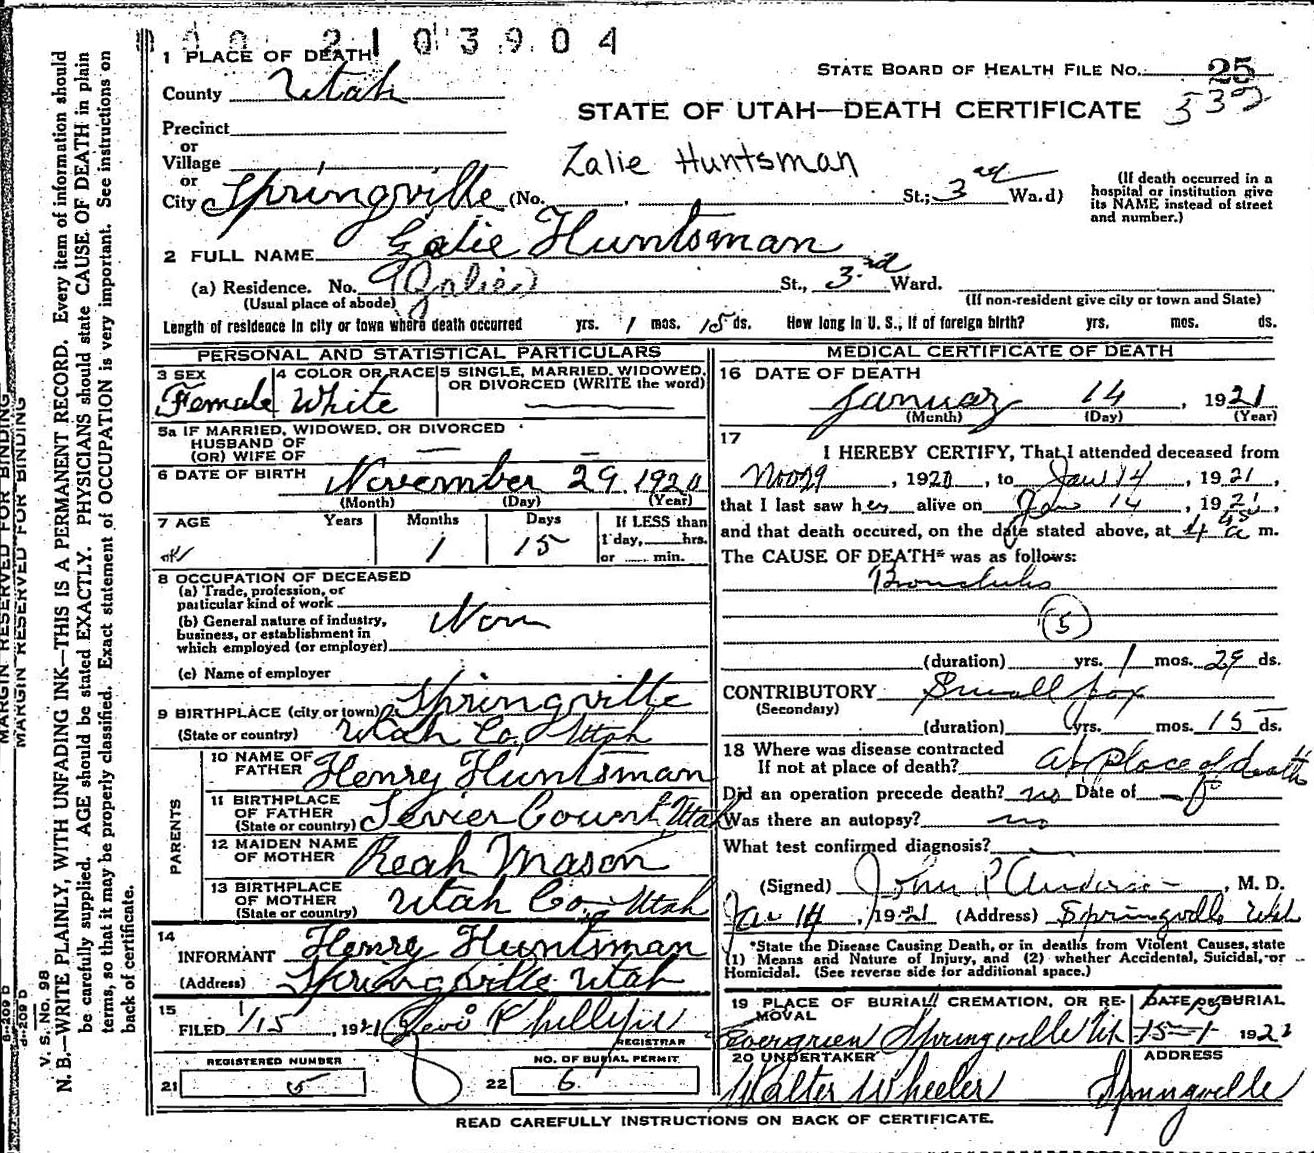 000 2103904
1 PLACE OF DEATH
County Utah
STATE BOARD OF HEALTH FILE No. 25
532
STATE OF UTAH—DEATH CERTIFICATE
Precinct
or
Village
or
City Springville (No. , St.; 3rd Ward)
Zalie Huntsman
(If death occurred in a
hospital or institution give
its NAME instead of street
and number.)
2 FULL NAME Zalie Huntsman
(a) Residence. No. (Zalie) St., 3rd Ward.
(Usual place of abode)
(If non-resident give city or town and State)
Length of residence in city or town where death occurred yrs. 1 mos. 15 ds. How long in U. S., if of foreign birth? yrs. mos. ds.
PERSONAL AND STATISTICAL PARTICULARS
3 SEX
Female
4 COLOR OR RACE
White
5 SINGLE, MARRIED, WIDOWED,
OR DIVORCED (WRITE the word)
5a IF MARRIED, WIDOWED, OR DIVORCED
HUSBAND OF
(OR) WIFE OF
6 DATE OF BIRTH November 29 1920
(Month) (Day) (Year)
7 AGE Years Months Days
1 15
If LESS than
1 day, hrs.
or min.
8 OCCUPATION OF DECEASED
(a) Trade, profession, or
particular kind of work
(b) General nature of industry,
business, or establishment in
which employed (or employer)
Non
(c) Name of employer
9 BIRTHPLACE (city or town) Springville
(State or country) Utah Co, Utah
PARENTS
10 NAME OF
FATHER Henry Huntsman
11 BIRTHPLACE
OF FATHER
(State or country) Sevier County Utah
12 MAIDEN NAME
OF MOTHER Reah Mason
13 BIRTHPLACE
OF MOTHER
(State or country) Utah Co, Utah
14
INFORMANT Henry Huntsman
(Address) Springville Utah
15
FILED 1/15, 1921 Phillips
REGISTRAR
REGISTERED NUMBER
21 5
NO. OF BURIAL PERMIT
22 6
MEDICAL CERTIFICATE OF DEATH
16 DATE OF DEATH
January 14, 1921
(Month) (Day) (Year)
17
I HEREBY CERTIFY, That I attended deceased from
Nov 29, 1920, to Jan 14, 1921,
that I last saw her alive on Jan 14, 1921,
and that death occured, on the date stated above, at 4 45 a m.
The CAUSE OF DEATH* was as follows:
Bronchitis
5
(duration) yrs. 1 mos. 29 ds.
CONTRIBUTORY Small pox
(Secondary)
(duration) yrs. mos. 15 ds.
18 Where was disease contracted
If not at place of death? at place of death
Did an operation precede death? no Date of
Was there an autopsy? no
What test confirmed diagnosis?
(Signed) John P Anderson, M. D.
Jan 14, 1921 (Address) Springville Utah
*State the Disease Causing Death, or in deaths from Violent Causes, state
(1) Means and Nature of Injury, and (2) whether Accidental, Suicidal, or
Homicidal. (See reverse side for additional space.)
19 PLACE OF BURIAL, CREMATION, OR RE-
MOVAL
Evergreen Springville Ut
DATE OF BURIAL
15 1 1921
20 UNDERTAKER
Walter Wheeler
ADDRESS
Springville
READ CAREFULLY INSTRUCTIONS ON BACK OF CERTIFICATE.
MARGIN RESERVED FOR BINDING
MARGIN RESERVED FOR BINDING
V. S. No. 98
N. B.—WRITE PLAINLY, WITH UNFADING INK—THIS IS A PERMANENT RECORD. Every item of information should
be carefully supplied. AGE should be stated EXACTLY. PHYSICIANS should state CAUSE OF DEATH in plain
terms, so that it may be properly classified. Exact statement of OCCUPATION is very important. See instructions on
back of certificate.